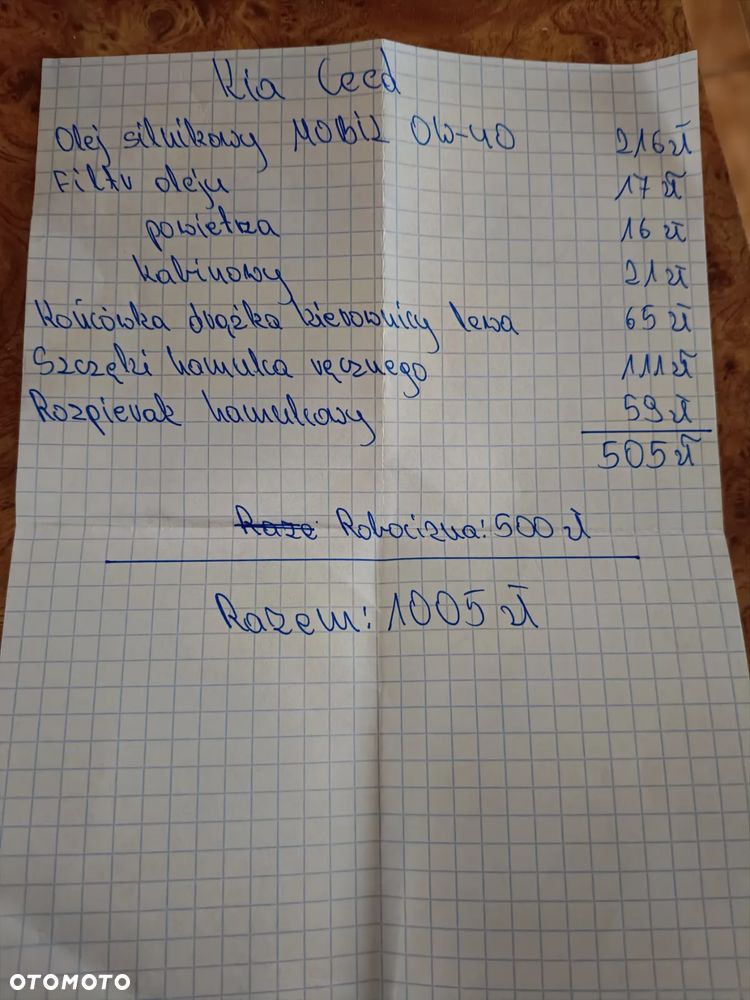 Kia Ceed
Olej silnikowy MOBIL 0W-40 216 zł
Filtr oleju 17 zł
powietrza 16 zł
kabinowy 21 zł
Końcówka drążka kierownicy lewa 65 zł
Szczęki hamulca ręcznego 111 zł
Rozpierak hamulcowy 59 zł
505 zł
Raze Robocizna: 500 zł
Razem: 1005 zł
OTOMOTO